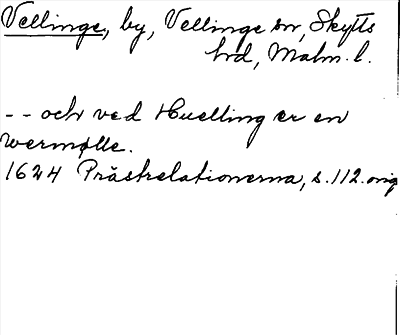 Vellinge, by, Vellinge sn, Skytts
hrd, Malm. l.
-- och ved Huelling er en
wermølle.
1624 Prästrelationerna, s. 112. orig